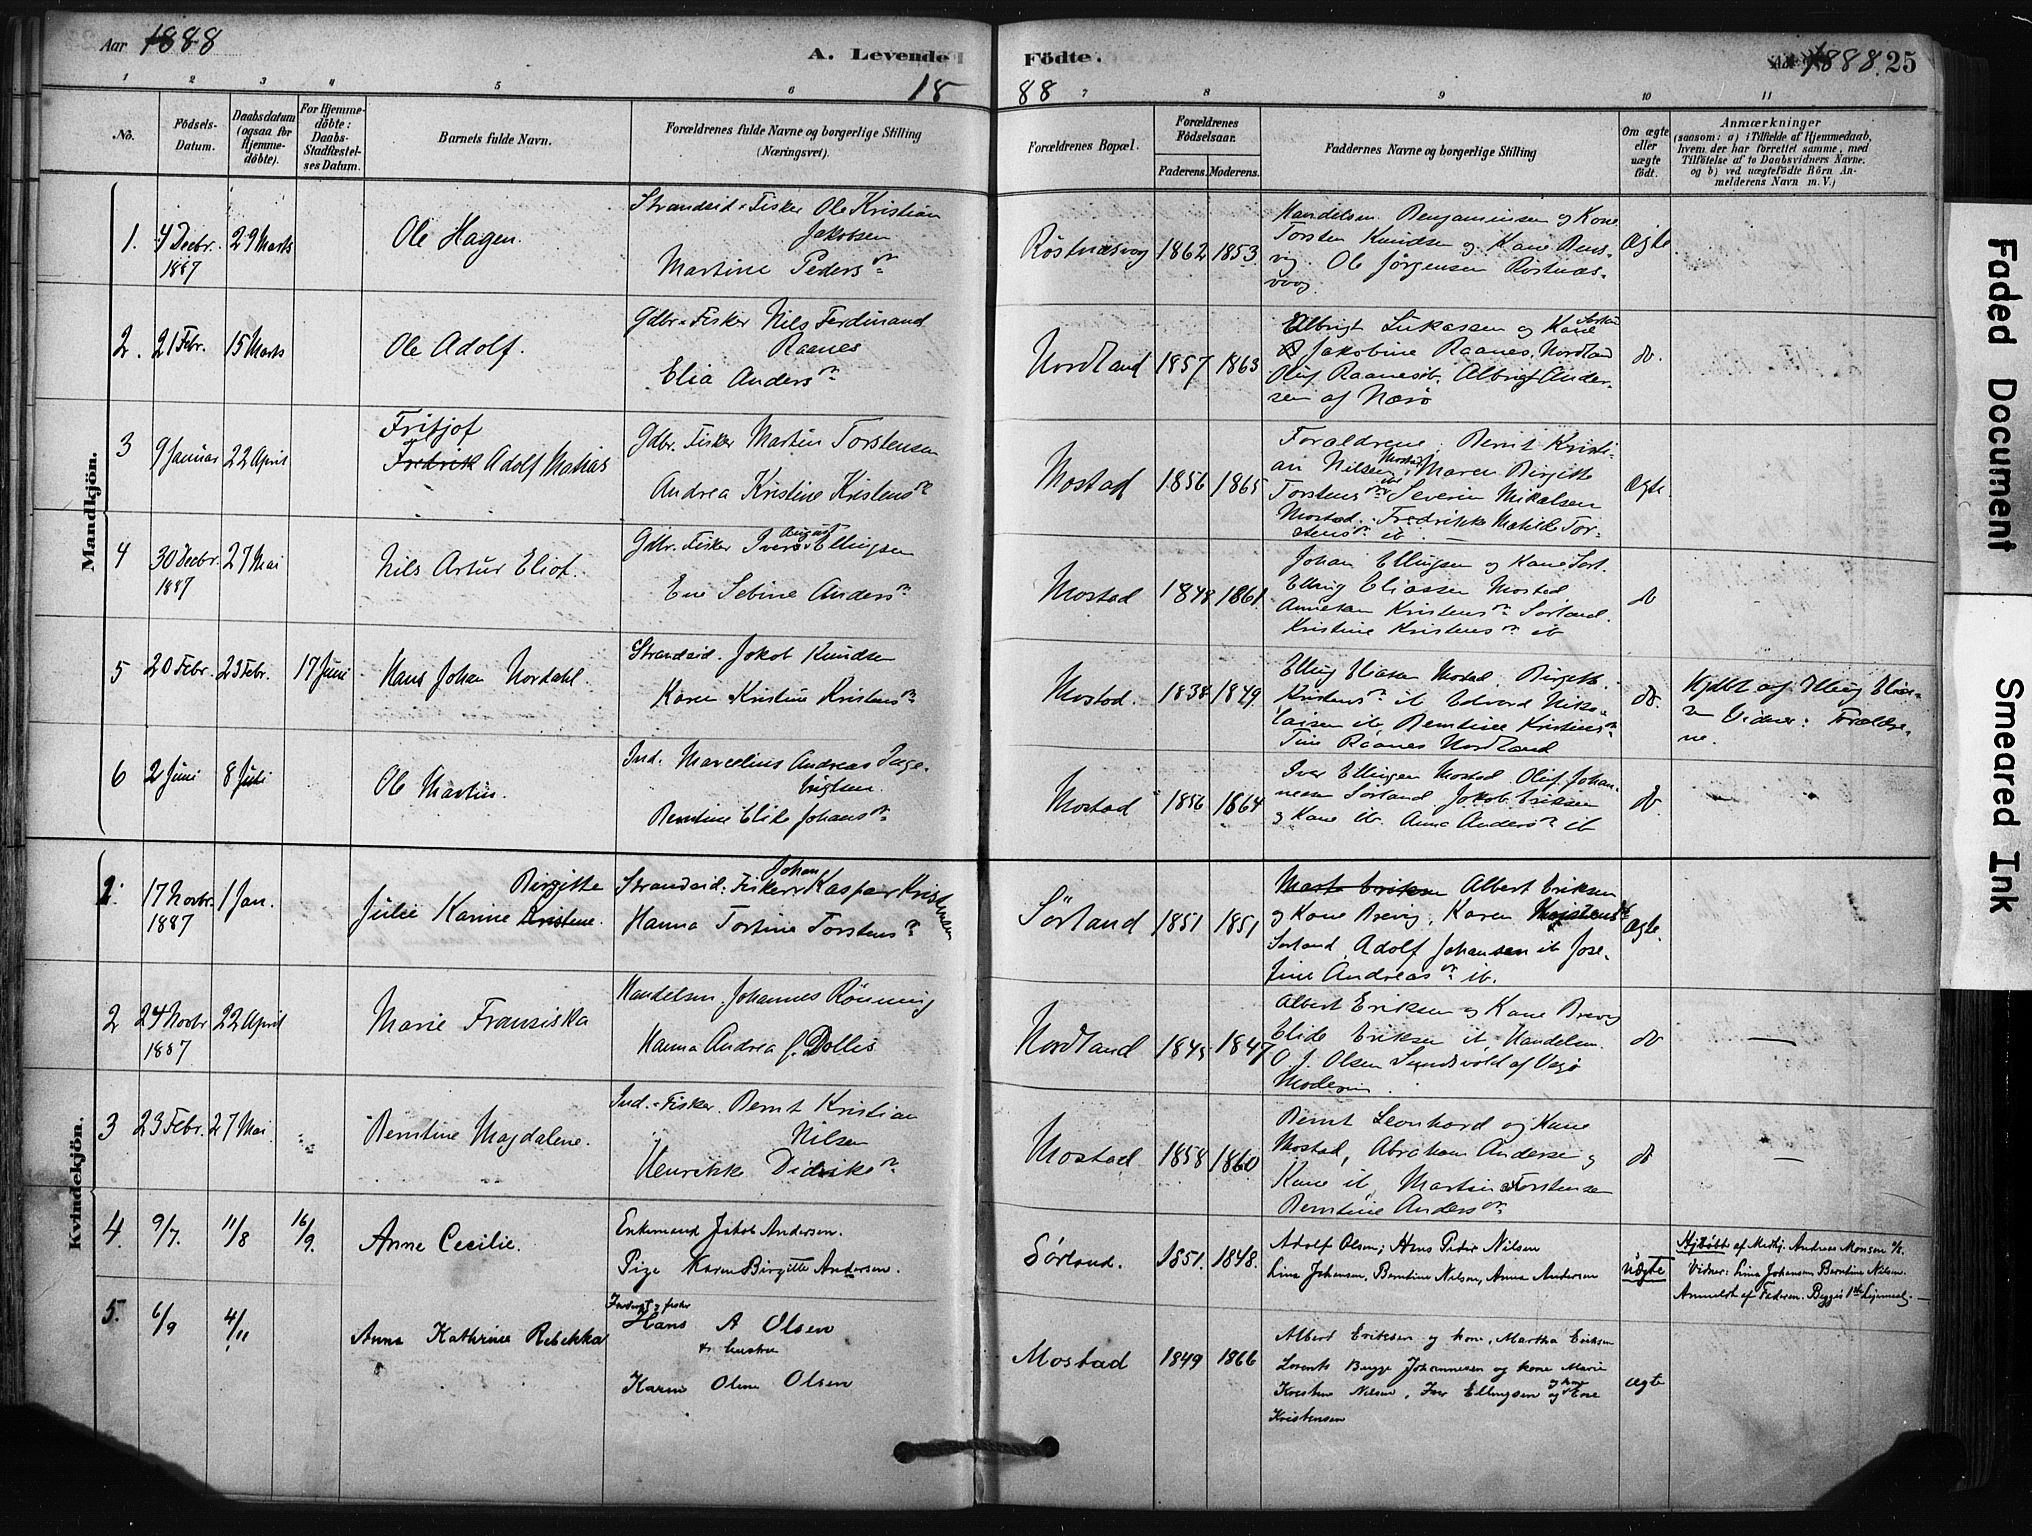 Aar 1888
A. Levende
Födte.
1888. 25
18
88
1 2 3 4 5 6 7 8 9 10 11
No.
Födsels-
Datum.
Daabsdatum
(ogsaa for
Hjemme-
döbte).
For Hjemme-
döbte:
Daabs-
Stadfæstel-
ses Datum.
Barnets fulde Navn.
Forældrenes fulde Navne og borgerlige Stilling
(Næringsvei).
Forældrenes Bopæl.
Forældrenes
Födselsaar.
Faderens. Moderens.
Faddernes Navne og borgerlige Stilling
Om ægte
eller
uægte
födt.
Anmærkninger
(saasom: a) i Tilfælde af Hjemmedaab,
hvem der har forrettet samme, med
Tilföielse af to Daabsvidners Navne.
og b) ved uægtefödte Börn An-
melderens Navn m. V.)
Mandkjön.
1. 4 Decbr.
1887
29 Marts
Ole Hagen.
Strandsid. Fisker Ole Kristian
Jakobsen
Martine Pedersn
Röstnæsvog 1862 1853
Handelsm. Benjaminsen og Kone
Torsten Knudsen og Kone Brevig.
Ole Jörgensen Röstnæs-
vog.
Ægte
2. 21 Febr. 15 Marts
Ole Adolf.
Gdbr. Fisker Nils Ferdinand
Raanes
Elia Andersn
Nordland 1857 1863
Albrigt Lukassen og Kone Sorland
Jakobine Raanes, Nordland
Oluf Raanes ib. Albrigt Ander-
sen af Nærö
do.
3 9 Januar 22 April
Fritjof
Fredrik Adolf Matias
Gdbr. Fisker Martin Torstensen
Andrea Kristine Kristensn
Mostad 1856 1865
Forældrene, Bernt Kristi-
an Nilsen Mostad, Maren Birgitte
Torstensn ib. Severin Mikalsen
Mostad. Fredrikke Matilde Tor-
stensn ib.
Ægte.
4 30 Decbr.
1887
27 Mai
Nils Artur Eliot.
Gdbr. Fisker Iver August Ellingsen
Ene Sebine Andersn
Mostad 1848 1861
Johan Ellingsen og Kone Sorl.
Elling Eliassen Mostad,
Annesan Kristensn Sorland.
Kristine Kristensn ib
do
5 20 Febr. 23 Febr. 17 Juni
Hans Johan Nordahl
Strandsid. Jakob Knudsen
Karen Kristine Kristensn
Mostad. 1838 1849
Elling Eliasen Mostad. Birgitte
Kristensn ib Edvard Niko-
laisen ib Berntine Kristensn
Tine Raanes Nordland
do.
Hjdbt af Elling Elias-
sen Vidner: Forældre-
ne.
6 2 Juni 8 Juli
Ole Martin.
Ind. Marcelius Andreas Inge-
brigtsen
Berntine Elide Johansn
Mostad 1856 1864
Iver Ellingsen Mostad. Oluf Johan-
nesen Sörland Jakob Eriksen
og Kone ib. Anna Andersn ib
do.
Kvindekjön.
1. 17 Novbr.
1887
1 Jan.
Birgitte
Julie Karine Kristene.
Johan
Strandsid. Fisker Kasper Kristensen
Hanna Tortine Torstensn
Sörland 1851 1851
Marta Eriksen Albert Eriksen
og Kone Brevig, Karen Kristensn
Sorland, Adolf Johansen ib Jose-
fine Andreasn ib.
Ægte.
2 24 Novbr
1887
22 April
Marie Fransiska
Handelsm. Johannes Rönning
Hanna Andrea f. Dollis
Nordland 1845 1847
Albert Eriksen og Kone Brevig
Elide Eriksen ib, Handelsm.
O. J. Olsen Sundsvold af Vegö
Moderen
do
3 23 Febr. 27 Mai
Berntine Magdalene.
Ind. Fisker. Bernt Kristian
Nilsen
Henrikke Didriksn
Mostad. 1858 1860
Bernt Leonhard og Kone
Mostad, Abraham Andersen og
Kone ib, Martin Torstensen
Berntine Andersn
do
4. 9/7. 11/8 16/9.
Anne Cecilie.
Enkemand Jakob Andersen.
Pige Karen Birgitte Andersen.
Sörland. 1851. 1848.
Adolf Olsen; Hans Peter Nilsen
Lina Johansen, Berntine Nilsen, Anna Andersen
Uægte
Hjdöbt af Medhj. Andreas Monsen
Vidner: Lina Johansen Berntine Nilsen.
Anmeldt af Faderen. Begges 1ste Leiermaal.
5. 6/9 4/11
Anna Kathrine Rebekka
Inderst og fisker
Hans A Olsen
& hustru
Karen Oline Olsen
Mostad 1849 1866
Albert Eriksen og kone, Martha Eriksen
Lorents Bugge Johannesen og kone Marie
Kristine Nilsen, Iver Ellingsen og kone og Ene
Kristensen
Ægte
Faded Document
Smeared Ink